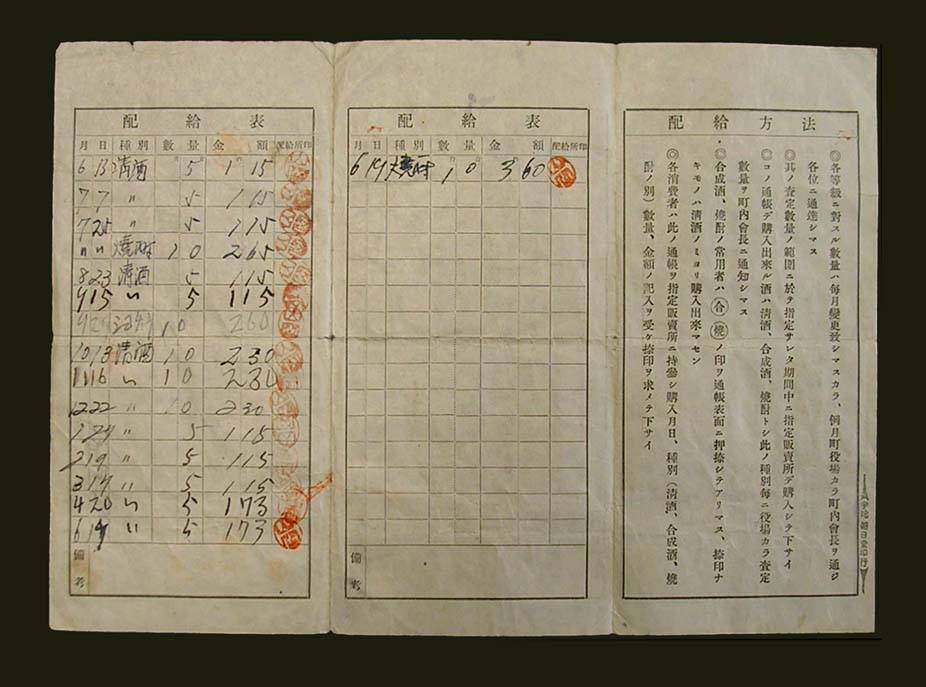 配給方法
◎各等級ニ對スル數量ハ毎月變更致シマスカラ、例月町役場カラ町內會長ヲ通ジ
各位ニ通達シマス
◎其ノ査定數量ノ範圍ニ於テ指定サレタ期間中ニ指定販賣所デ購入シテ下サイ
◎コノ通帳デ購入出來ル酒ハ清酒、合成酒、燒酎トシ此ノ種別每ニ役場カラ査定
數量ヲ町內會長ニ通知シマス
◎合成酒、燒酎ノ常用者ハ合燒ノ印ヲ通帳表面ニ押捺シテアリマス、捺印ナ
キモノハ清酒ノミヨリ購入出來マセン
◎各消費者ハ此ノ通帳ヲ指定販賣所ニ持參シ購入月日、種別(清酒、合成酒、燒
酎ノ別)數量、金額ノ記入ヲ受ケ捺印ヲ求メテ下サイ
配給表
月 日 種別 數量 金額 配給所印
6 19 燒酎 10 3 60
備考
配給表
月 日 種別 數量 金額 配給所印
6 13 清酒 5 1 15
7 7 〃 5 1 15
7 25 〃 5 1 15
〃 〃 燒酎 10 2 65
8 23 清酒 5 1 15
9 15 〃 5 1 15
10 2 60
10 13 清酒 10 2 30
11 16 〃 10 2 30
12 22 〃 10 2 30
1 29 〃 5 1 15
2 19 〃 5 1 15
3 17 〃 5 1 15
4 20 〃 5 1 73
6 〃 5 1 73
備考